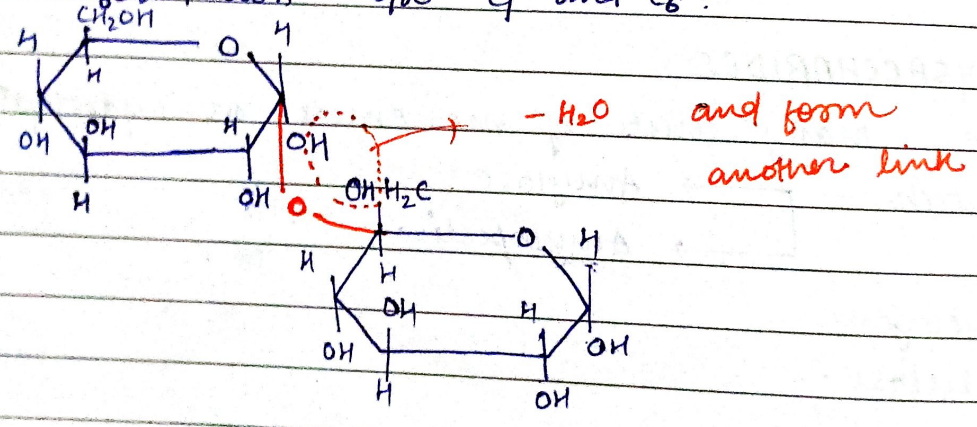 C₁ and C₆.
CH₂OH
H O H
H
OH OH H OH - H₂O and form
another link
H OH O OH H₂C
O H
H H
OH H
OH OH
H OH